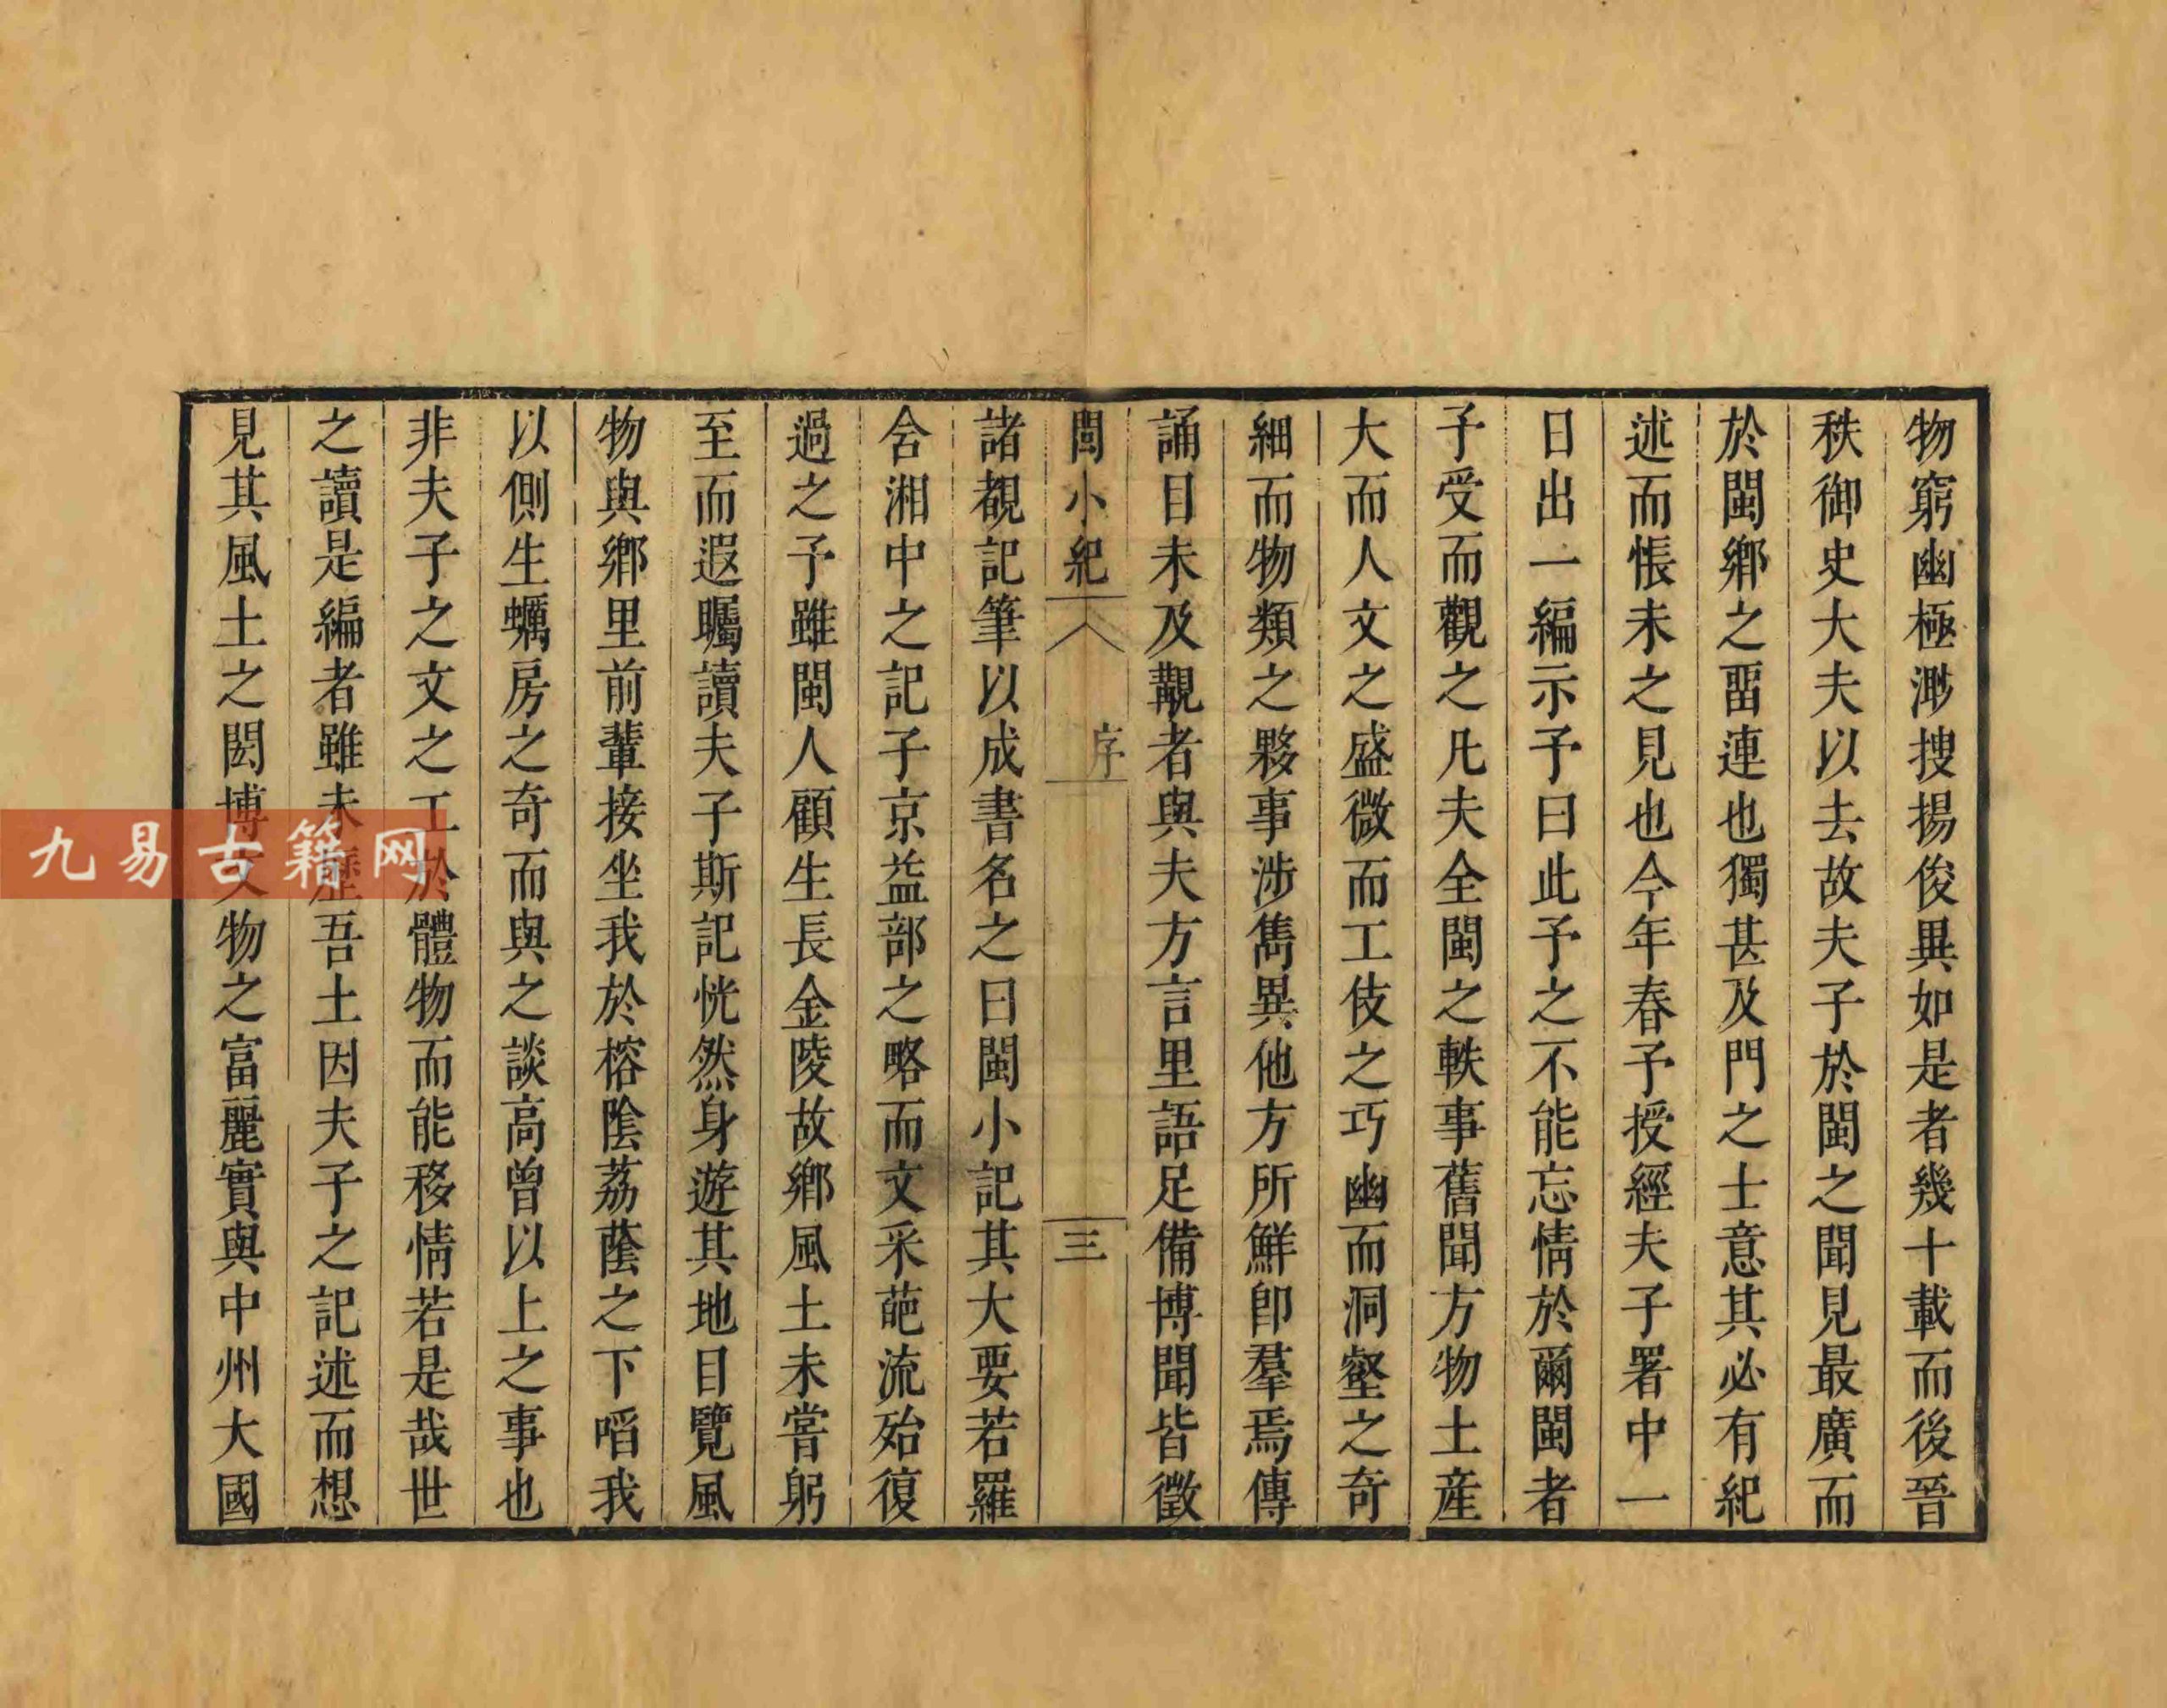 物窮幽極渺搜揚俊異如是者幾十載而後晉
秩御史大夫以去故夫子於閩之聞見最廣而
於閩鄉之畱連也獨甚及門之士意其必有紀
述而悵未之見也今年春予授經夫子署中一
日出一編示予曰此予之不能忘情於爾閩者
予受而觀之凡夫全閩之軼事舊聞方物土産
大而人文之盛微而工伎之巧幽而洞壑之奇
細而物類之夥事涉雋異他方所鮮卽羣焉傳
誦目未及觀者與夫方言里語足備博聞皆徵
閩小紀
序
三
諸覩記筆以成書名之曰閩小記其大要若羅
含湘中之記子京益部之略而文采葩流殆復
過之予雖閩人顧生長金陵故鄉風土未嘗躬
至而遐矚讀夫子斯記恍然身遊其地目覽風
物與鄉里前輩接坐我於榕陰荔蔭之下啗我
以側生蠣房之奇而與之談高曾以上之事也
非夫子之文之工於體物而能移情若是哉世
之讀是編者雖未歷吾土因夫子之記述而想
見其風土之閎博文物之富麗實與中州大國
九易古籍网